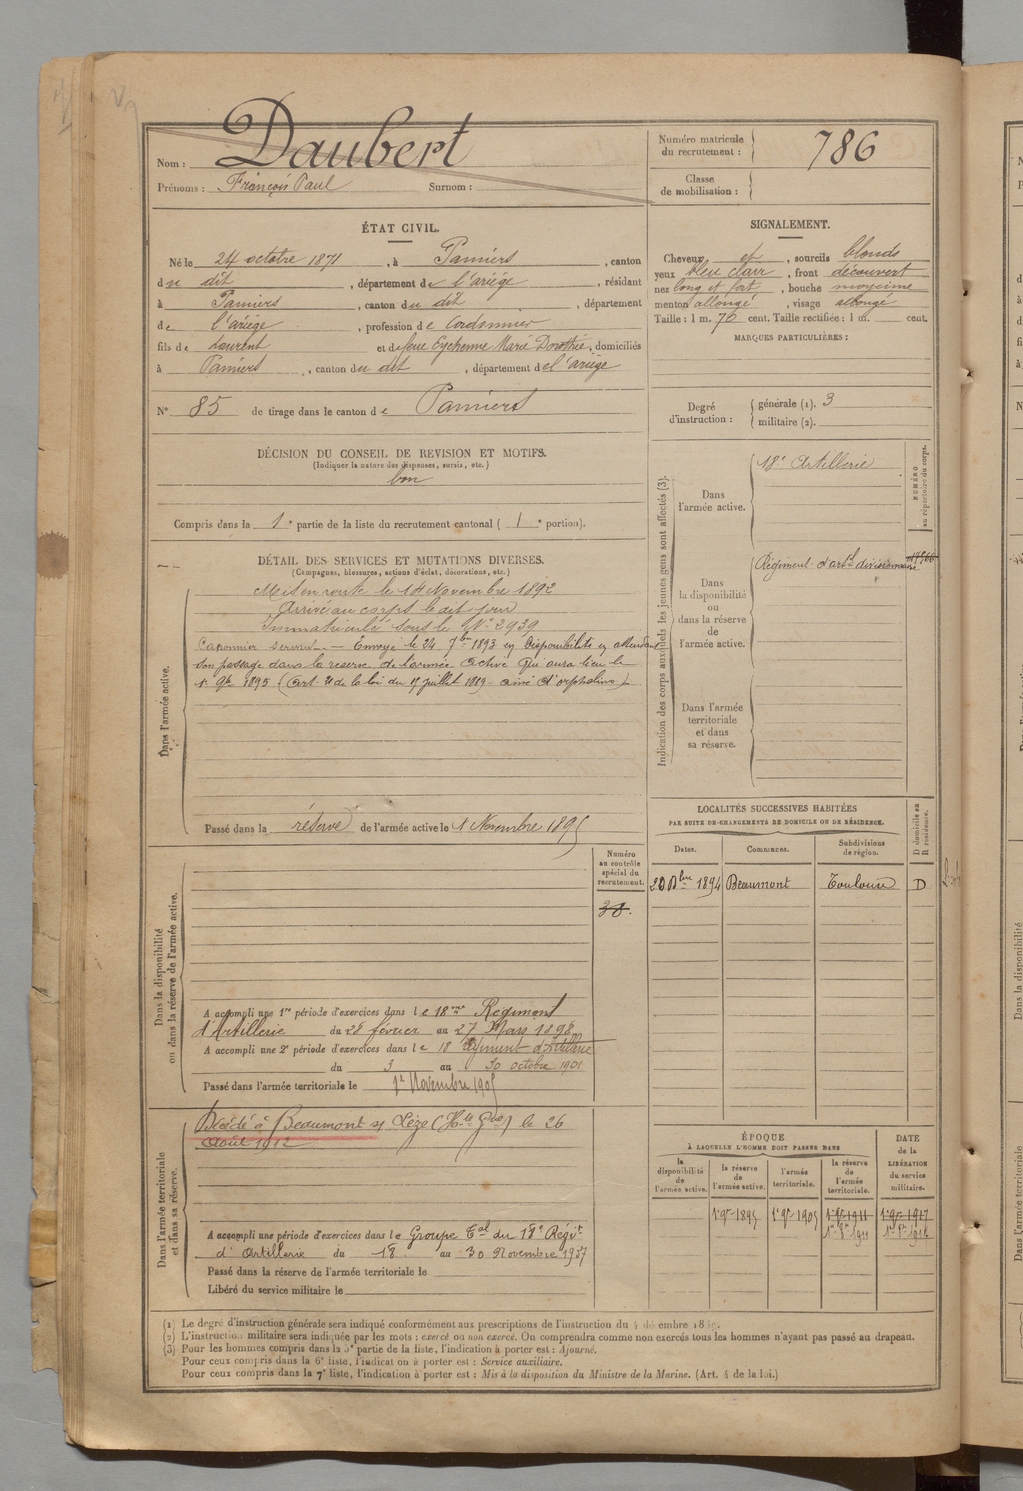 Nom : Daubert
Prénoms : François Paul Surnom :
Numéro matricule du recrutement : 786
Classe de mobilisation :
ÉTAT CIVIL.
Né le 24 octobre 1871, à Pamiers, canton
du dit, département de l'ariège, résidant
à Pamiers, canton du dit, département
de l'ariège, profession de Cordonnier
fils de Laurent et de feue Eychenne Marie Dorothée, domiciliés
à Pamiers, canton du dit, département de l'ariège
N° 85 de tirage dans le canton de Pamiers
SIGNALEMENT.
Cheveux et, sourcils blonds
yeux bleu clair, front découvert
nez long et fort, bouche moyenne
menton allongé, visage allongé
Taille : 1 m. 70 cent. Taille rectifiée : 1 m. cent.
MARQUES PARTICULIÈRES :
Degré d'instruction : générale (1). 3
militaire (2).
DÉCISION DU CONSEIL DE REVISION ET MOTIFS.
(Indiquer la nature des dispenses, sursis, etc.)
bon
Compris dans la 1e partie de la liste du recrutement cantonal (1e portion).
DÉTAIL DES SERVICES ET MUTATIONS DIVERSES.
(Campagnes, blessures, actions d'éclat, décorations, etc.)
Dans l'armée active.
Mis en route le 14 Novembre 1892
Arrivé au corps le dit jour
Immatriculé sous le N° 2939
Canonnier servant. — Envoyé le 24 7bre 1893 en Disponibilité en attendant
son passage dans la réserve de l'armée active qui aura lieu le
1r 9bre 1895 (art. 21 de la loi du 15 juillet 1889 - ainé d'orphelins)
Passé dans la réserve de l'armée active le 1 Novembre 1895
Indication des corps auxquels les jeunes gens sont affectés (3).
NUMÉRO au répertoire du corps.
Dans l'armée active.
18e Artillerie
Dans la disponibilité ou dans la réserve de l'armée active.
Régiment d'arti divisionnaire
Dans l'armée territoriale et dans sa réserve.
LOCALITÉS SUCCESSIVES HABITÉES
PAR SUITE DE CHANGEMENTS DE DOMICILE OU DE RÉSIDENCE.
Dates. Communes. Subdivisions de région. D domicile ou R résidence.
20 Xbre 1894 Beaumont Toulouse D
Dans la disponibilité ou dans la réserve de l'armée active.
Numéro au contrôle spécial du recrutement.
38.
A accompli une 1re période d'exercices dans le 18me Régiment
d'Artillerie du 28 février au 27 Mars 1898
A accompli une 2e période d'exercices dans le 18 Régiment d'Artillerie
du 3 au 30 octobre 1901
Passé dans l'armée territoriale le 1r Novembre 1905
Dans l'armée territoriale et dans sa réserve.
Décédé à Beaumont s/ Lèze (Hte Gne) le 26
Août 1912
A accompli une période d'exercices dans le Groupe Tal du 18e Régit
d'Artillerie du 18 au 30 Novembre 1907
Passé dans la réserve de l'armée territoriale le
Libéré du service militaire le
ÉPOQUE
A LAQUELLE L'HOMME DOIT PASSER DANS
la disponibilité de l'armée active. la réserve de l'armée active. l'armée territoriale. la réserve de l'armée territoriale.
DATE de la LIBÉRATION du service militaire.
1r 9bre 1895 1r 9bre 1905 1r 9bre 1911 1r 9bre 1917
(1) Le degré d'instruction générale sera indiqué conformément aux prescriptions de l'instruction du 4 décembre 1889.
(2) L'instruction militaire sera indiquée par les mots : exercé ou non exercé. On comprendra comme non exercés tous les hommes n'ayant pas passé au drapeau.
(3) Pour les hommes compris dans la 5e partie de la liste, l'indication à porter est : Ajourné.
Pour ceux compris dans la 6e liste, l'indication à porter est : Service auxiliaire.
Pour ceux compris dans la 7e liste, l'indication à porter est : Mis à la disposition du Ministre de la Marine. (Art. 4 de la loi.)